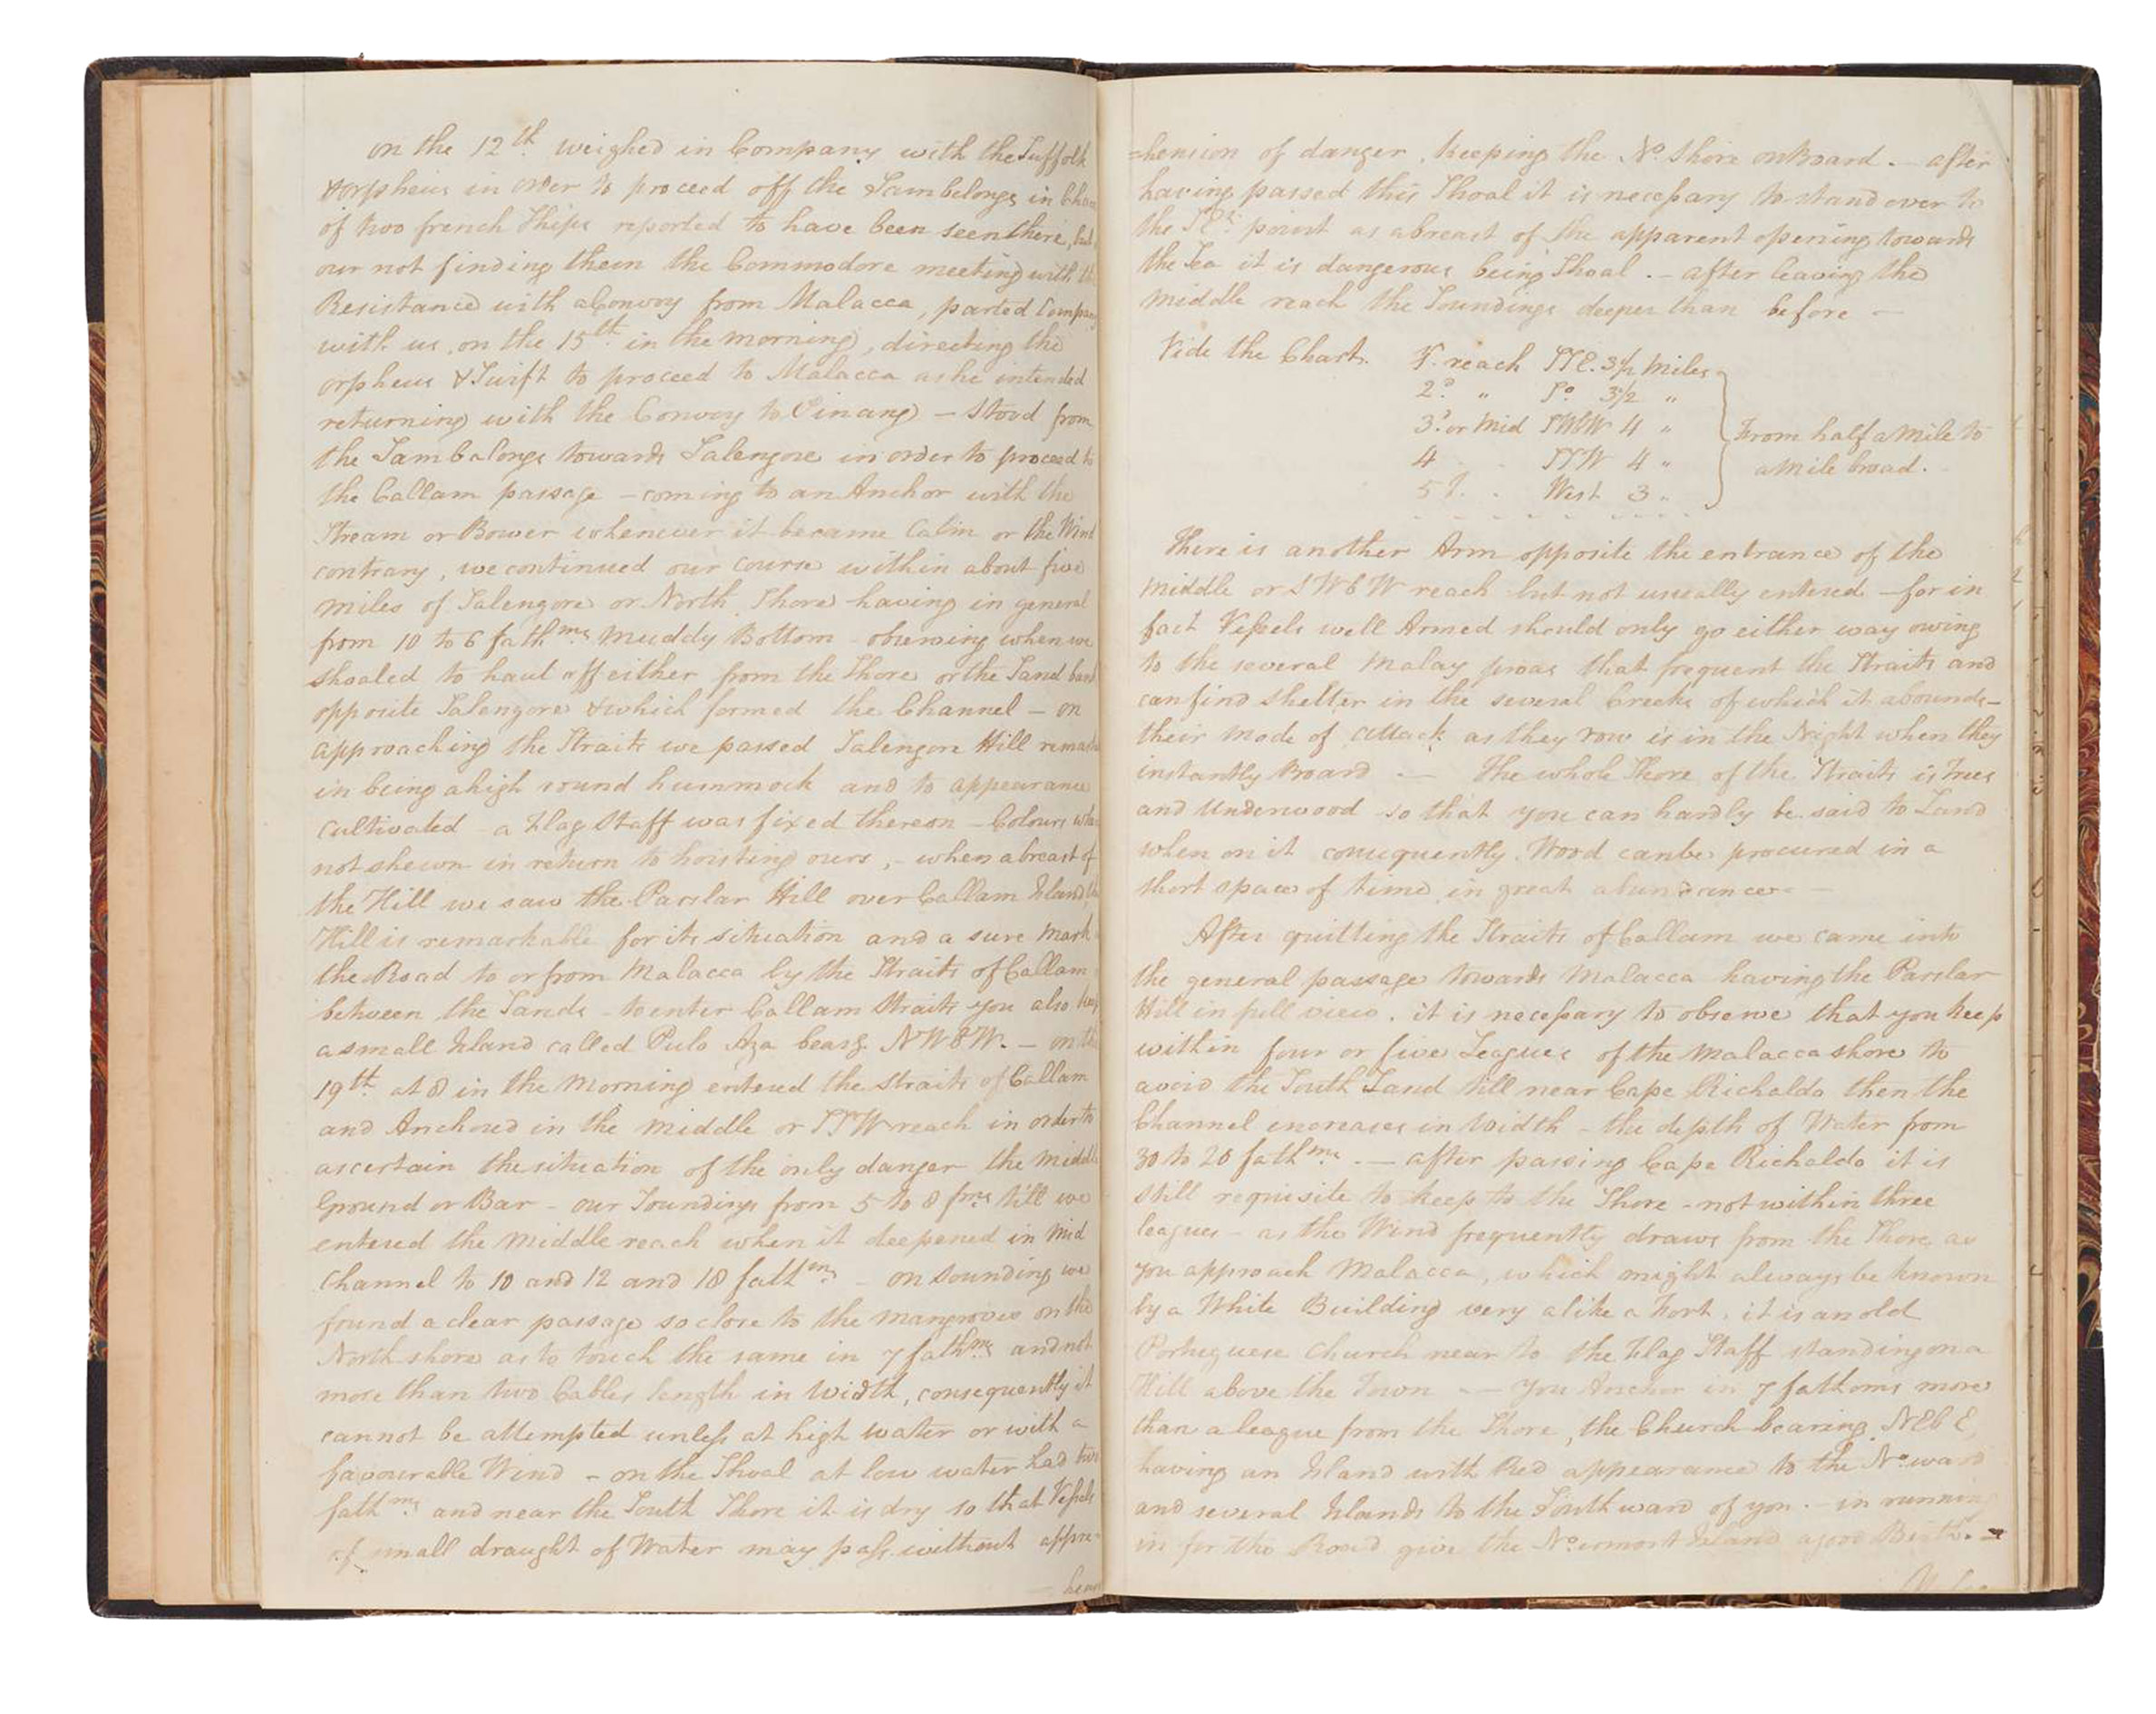 on the 12th weighed in Company with the Suffolk
& orpheus in order to proceed off the Sambelongs in
of two french Ships reported to have been seen there,
our not finding them the Commodore meeting with
Resistance with a Convoy from Malacca, parted
with us, on the 15th in the morning, directing the
orpheus & Swift to proceed to Malacca as he intended
returning with the Convoy to Pinang - stood from
the Sambelongs towards Salengore in order to proceed to
the Callam passage - coming to an Anchor with the
Stream or Bower whenever it became Calm or the Wind
contrary, we continued our course within about five
miles of Salengore or North Shore having in general
from 10 to 6 fathms Muddy Bottom - observing when we
shoaled to haul off either from the Shore or the Sand
opposite Salengore & which formed the Channel - on
approaching the Straits we passed Salengore Hill
in being a high round hummock and to appearance
cultivated - a Flag Staff was fixed thereon - Colours
not shewn in return to hoisting ours, - when abreast of
the Hill we saw the Parslar Hill over Callam Island,
Hill is remarkable for its situation and a sure mark
the Road to or from Malacca by the Straits of Callam
between the Sands - to enter Callam Straits you also
a small Island called Pulo Aza bearg. NWBW. - on the
19th at 8 in the Morning entered the Straits of Callam
and Anchored in the middle or SSW reach in order to
ascertain the situation of the only danger the middle
Ground or Bar - our Soundings from 5 to 8 fms till we
entered the middle reach when it deepened in mid
channel to 10 and 12 and 18 fathms - on sounding we
found a clear passage so close to the mangroves on the
North shore as to touch the same in 7 fathms and not
more than two Cables length in width, consequently it
cannot be attempted unless at high water or with a
favourable Wind - on the Shoal at low water had two
fathms and near the South Shore it is dry so that Vessels
of small draught of Water may pass without appre-
=hension of danger, keeping the No. Shore onboard. - after
having passed this Shoal it is necessary to stand over to
the point as abreast of the apparent opening towards
the Sea it is dangerous being Shoal. - after leaving the
middle reach the Soundings deeper than before -
Vide the Chart. reach SSE. 3½ Miles
2d. " So. 3½ "
3d. or Mid SWBW 4 " From half a Mile to
4 . . SSW 4 " a Mile broad.
5 . West 3 "
There is another Arm opposite the entrance of the
middle or SWBW reach but not usually entered - for in
fact Vessels well Armed should only go either way owing
to the several Malay proas that frequent the Straits and
can find shelter in the several Creeks of which it abounds -
their mode of attack as they row is in the Night when they
instantly Board. - The whole Shore of the Straits is Trees
and Underwood so that you can hardly be said to Land
when on it consequently. Wood can be procured in a
short space of time in great abundance -
After quitting the Straits of Callam we came into
the general passage towards Malacca having the Parslar
Hill in full view. it is necessary to observe that you keep
within four or five Leagues of the Malacca shore to
avoid the South Sand till near Cape Richaldo then the
Channel encreases in width - the depth of Water from
30 to 20 fathms. - after passing Cape Richaldo it is
still requisite to keep to the Shore - not within three
leagues - as the Wind frequently draws from the Shore, as
you approach Malacca, which might always be known
by a White Building very alike a Fort, it is an old
Portuguese Church near to the Flag Staff standing on a
Hill above the Town - You Anchor in 7 fathoms more
than a league from the Shore, the Church bearing NEbE
having an Island with Red appearance to the No.ward
and several Islands to the Southward of you. - in running
in for the Road give the No.ermost Island a good Birth. -